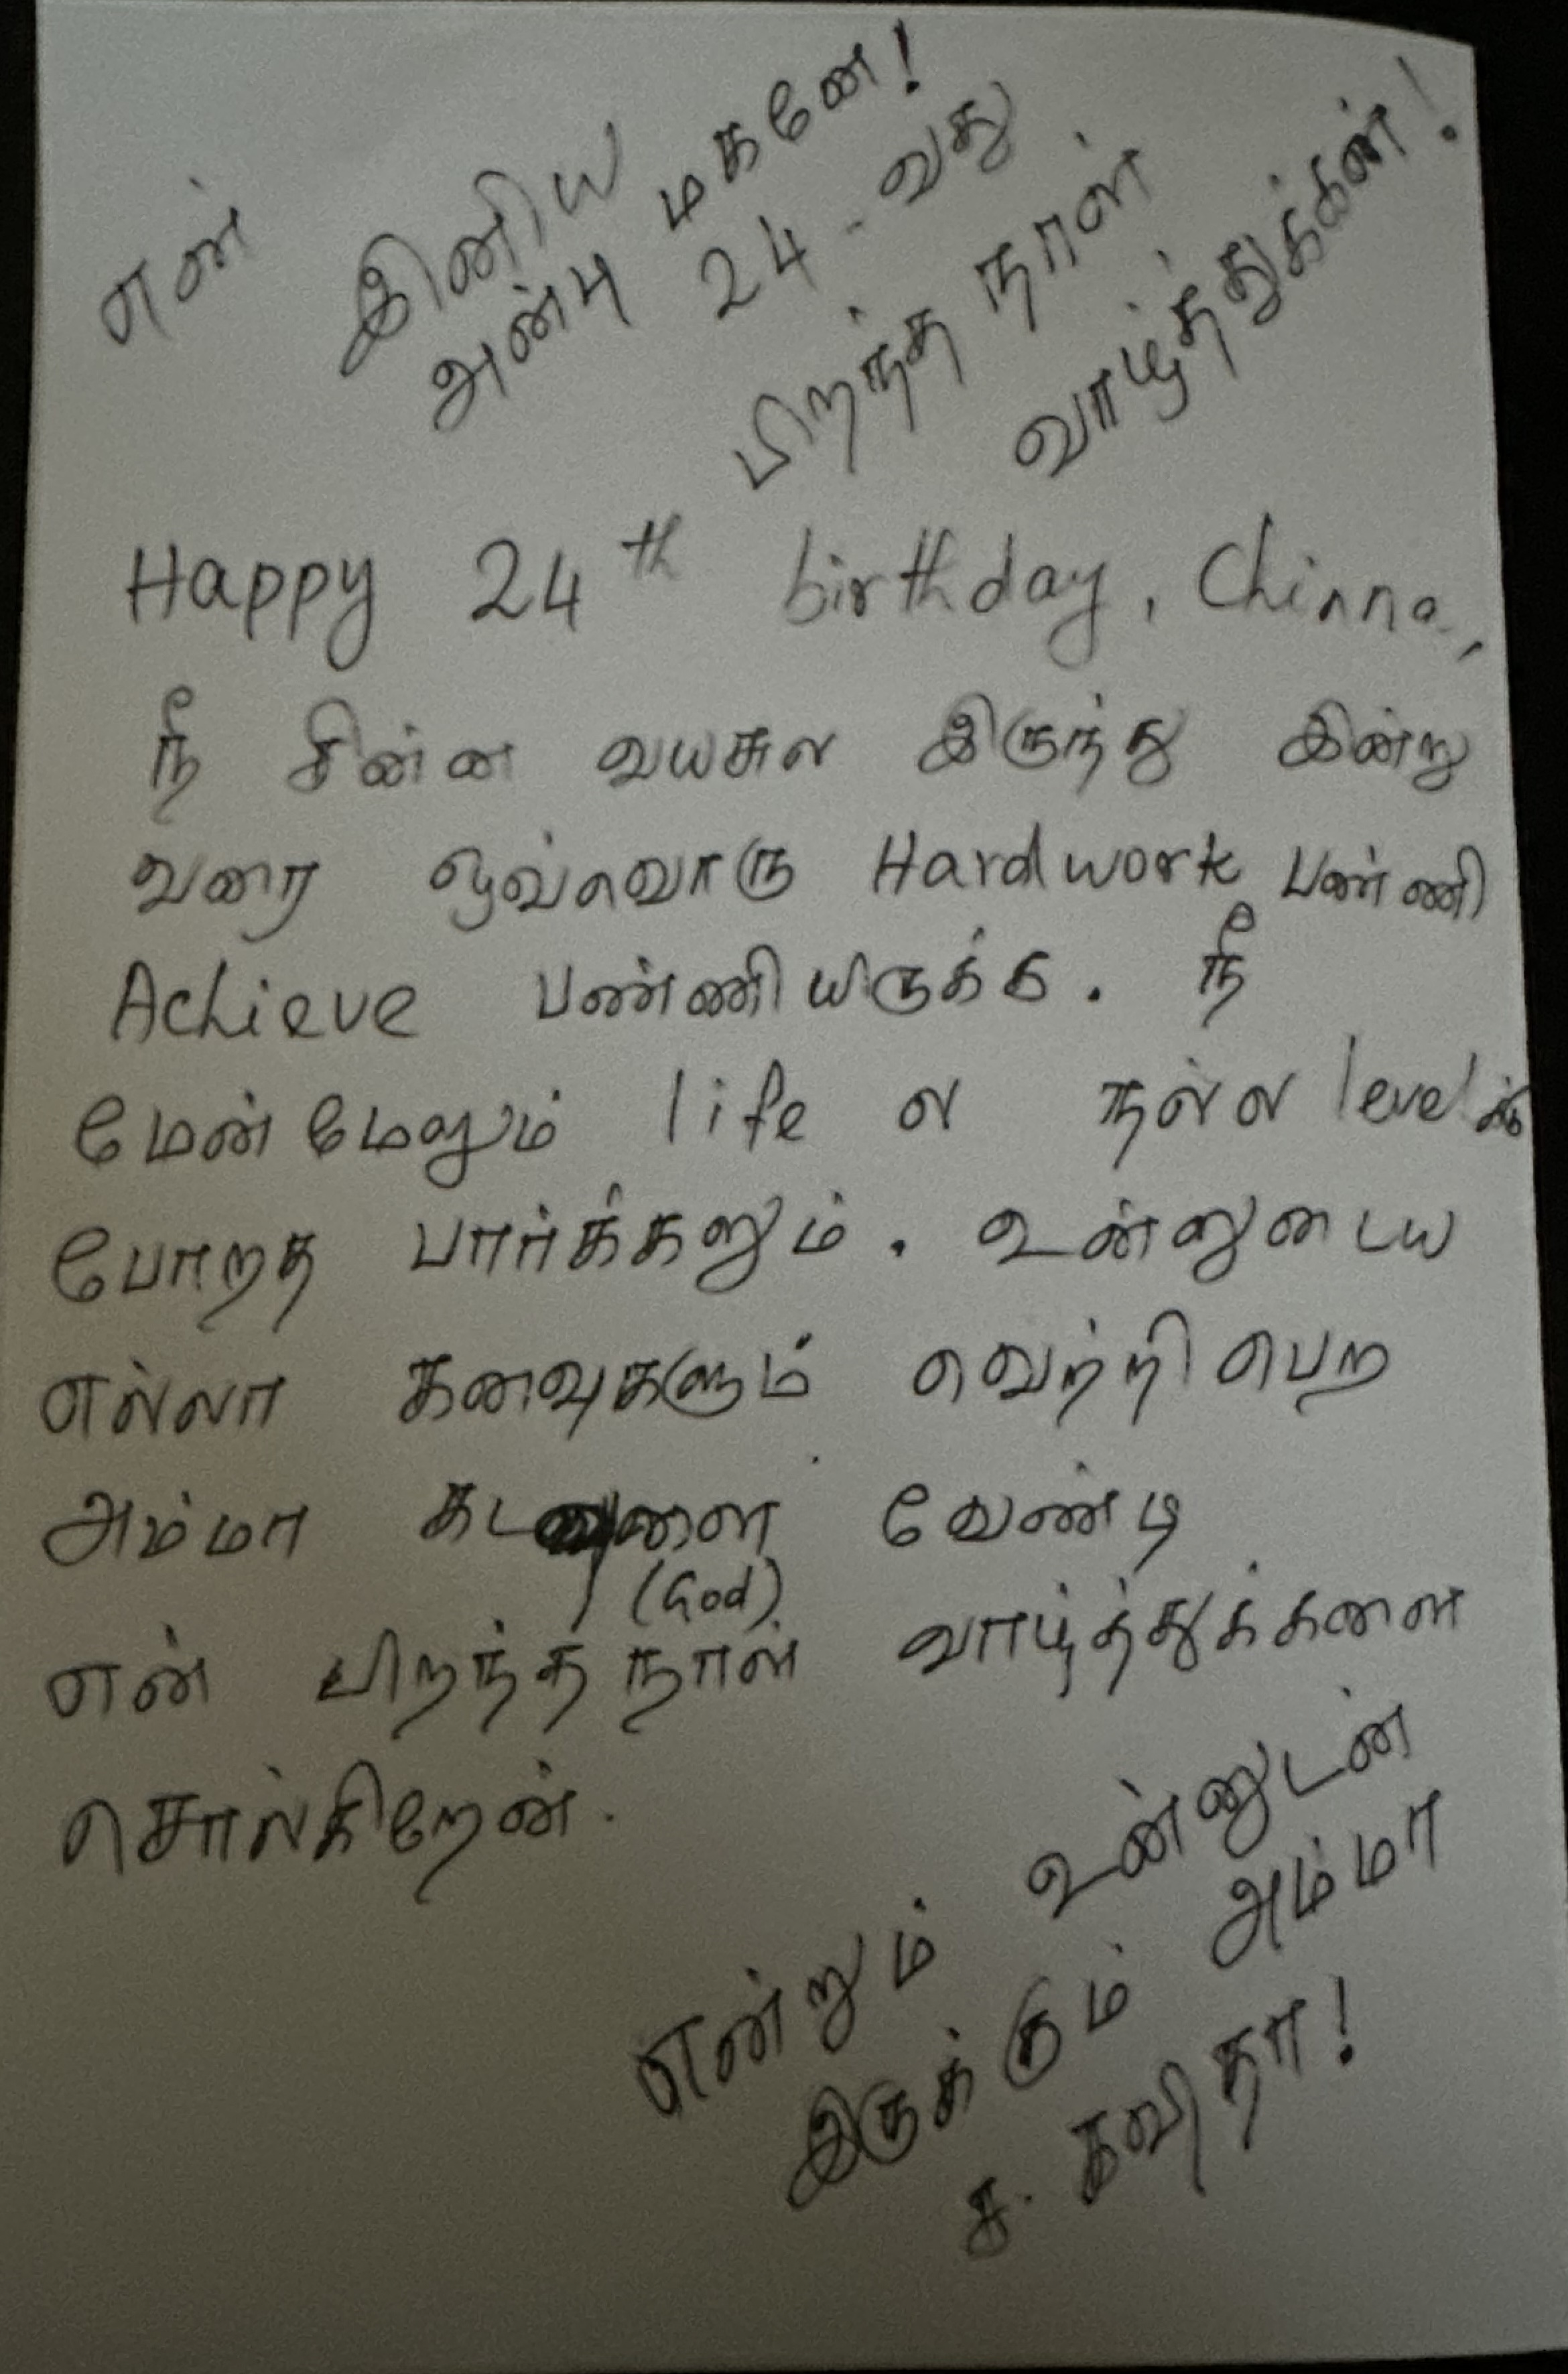 என் இனிய
அன்பு மகனே!
24-வது
பிறந்த நாள்
வாழ்த்துக்கள்!
Happy 24th birthday, Chinna,
நீ சின்ன வயசுல இருந்து இன்று
வரை ஒவ்வொரு Hardwork பண்ணி
Achieve பண்ணியிருக்க. நீ
மேன்மேலும் life ல நல்ல levelக்கு
போறத பார்க்கனும். உன்னுடைய
எல்லா கனவுகளும் வெற்றி பெற
அம்மா கடவுளை வேண்டி
(God)
என் பிறந்த நாள் வாழ்த்துக்களை
சொல்கிறேன்.
என்றும் உன்னுடன்
இருக்கும் அம்மா
ச. கவிதா!